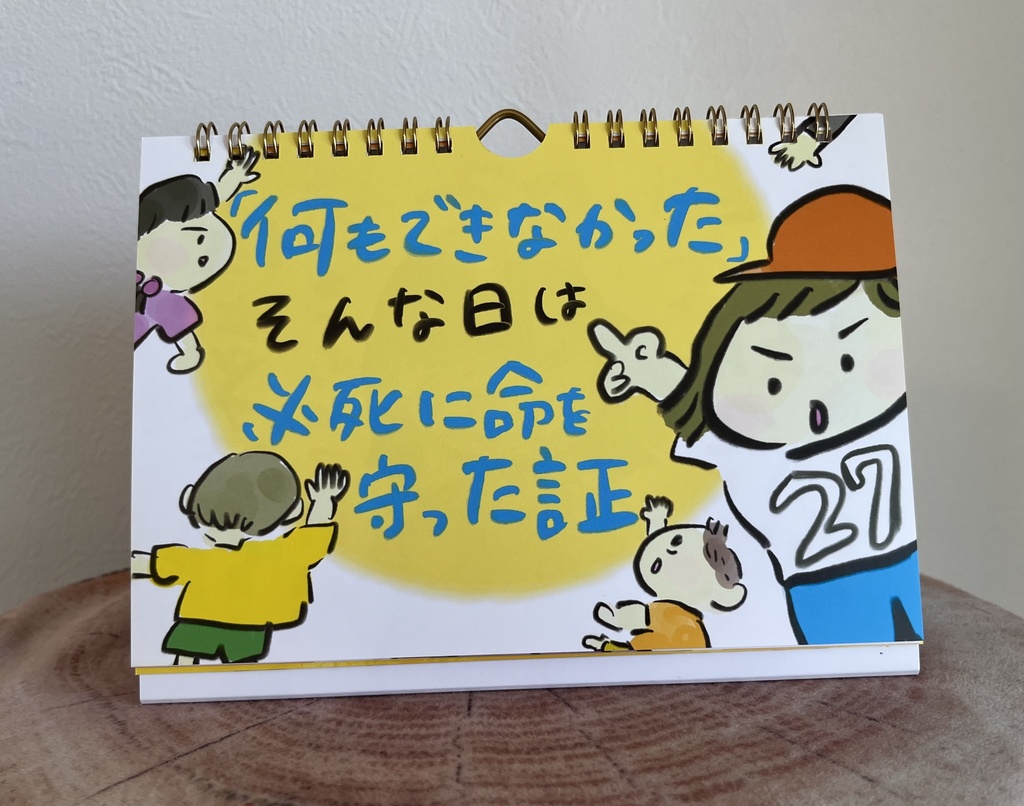 「何もできなかった」
そんな日は
必死に命を
守った証
27